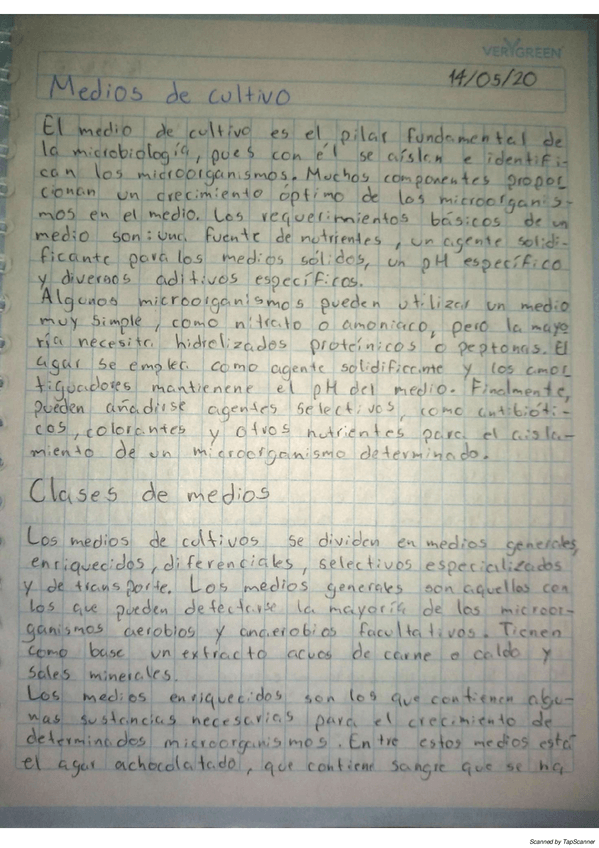 VERYGREEN
14/05/20
Medios de cultivo
El medio de cultivo es el pilar fundamental de
la microbiología, pues con él se aíslan e identifi-
can los microorganismos. Muchos componentes propor
cionan un crecimiento óptimo de los microorganis-
mos en el medio. Los requerimientos básicos de un
medio son: una fuente de nutrientes, un agente solidi-
ficante para los medios sólidos, un pH específico
y diversos aditivos específicos.
Algunos microorganismos pueden utilizar un medio
muy simple, como nitrato o amoniaco, pero la mayo
ría necesita hidrolizados proteínicos o peptonas. El
agar se emplea como agente solidificante y los amor
tiguadores mantienene el pH del medio. Finalmente,
pueden añadirse agentes selectivos, como antibióti-
cos, colorantes y otros nutrientes para el aisla-
miento de un microorganismo determinado.
Clases de medios
Los medios de cultivos se dividen en medios generales,
enriquecidos, diferenciales, selectivos especializados
y de transporte. Los medios generales son aquellos con
los que pueden detectarse la mayoría de los microor-
ganismos aerobios y anaerobios facultativos. Tienen
como base un extracto acuos de carne o caldo y
sales minerales.
Los medios enriquecidos son los que contienen algu-
nas sustancias necesarias para el crecimiento de
determinados microorganismos. Entre estos medios está
el agar achocolatado, que contiene sangre que se ha
Scanned by TapScanner